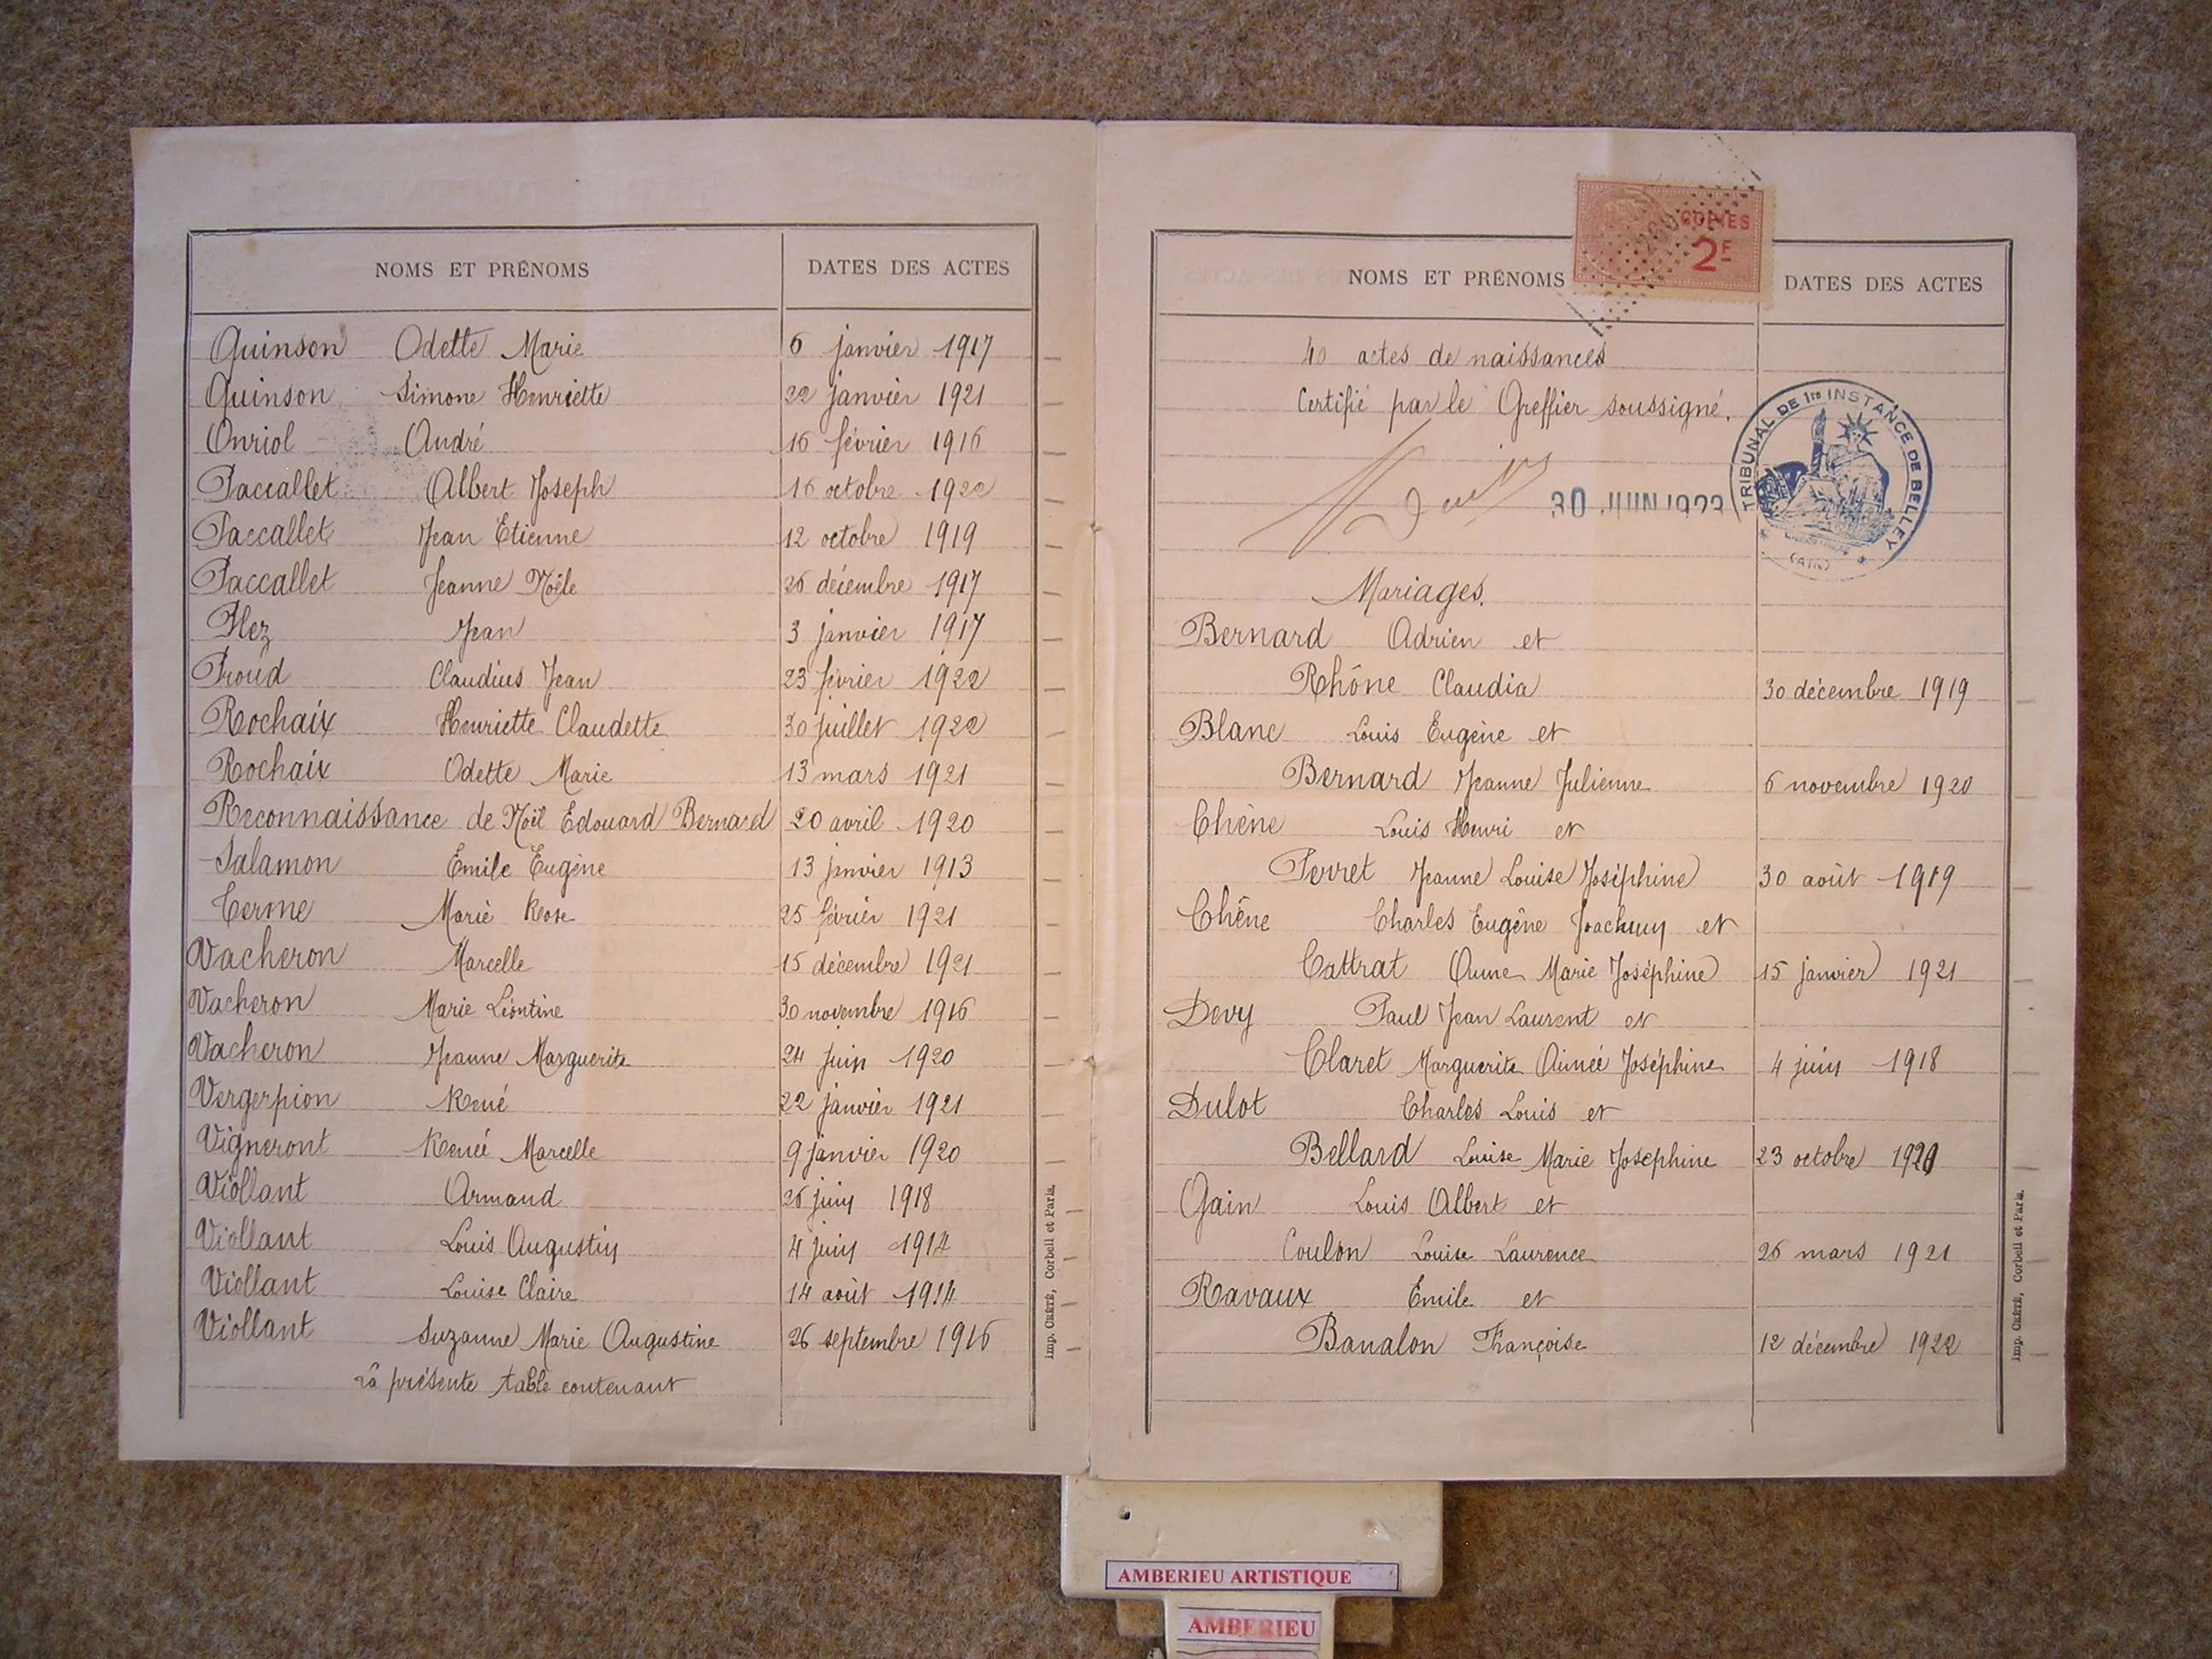 NOMS ET PRÉNOMS DATES DES ACTES
Quinson Odette Marie 6 janvier 1917
Quinson Simone Henriette 22 janvier 1921
Onriol André 16 février 1916
Paccallet Albert Joseph 16 octobre 1922
Paccallet Jean Etienne 12 octobre 1919
Paccallet Jeanne Noële 26 décembre 1917
Plez Jean 3 janvier 1917
Proud Claudius Jean 23 février 1922
Rochaix Henriette Claudette 30 juillet 1922
Rochaix Odette Marie 13 mars 1921
Reconnaissance de Noël Edouard Bernard 20 avril 1920
Salamon Emile Eugène 13 janvier 1913
Terme Marie Rose 25 février 1921
Vacheron Marcelle 15 décembre 1921
Vacheron Marie Léontine 30 novembre 1916
Vacheron Jeanne Marguerite 24 juin 1920
Vergerpion René 22 janvier 1921
Vigneront Renée Marcelle 9 janvier 1920
Viollant Armand 26 juin 1918
Viollant Louis Augustin 4 juin 1914
Viollant Louise Claire 14 août 1914
Viollant Suzanne Marie Augustine 26 septembre 1916
La présente table contenant
Imp. CRÉTÉ, Corbeil et Paris.
COPIES
2F
NOMS ET PRÉNOMS DATES DES ACTES
40 actes de naissances
Certifié par le Greffier soussigné.
30 JUIN 1923
TRIBUNAL DE 1re INSTANCE DE BELLEY
(AIN)
Mariages.
Bernard Adrien et
Rhône Claudia 30 décembre 1919
Blanc Louis Eugène et
Bernard Jeanne Julienne 6 novembre 1920
Chêne Louis Henri et
Perret Jeanne Louise Joséphine 30 août 1919
Chêne Charles Eugène Joachim et
Cattrat Anne Marie Joséphine 15 janvier 1921
Devy Paul Jean Laurent et
Claret Marguerite Aimée Joséphine 4 juin 1918
Dulot Charles Louis et
Bellard Louise Marie Josephine 23 octobre 1920
Gain Louis Albert et
Coulon Louise Laurence 26 mars 1921
Ravaux Emile et
Banalon Françoise 12 décembre 1922
Imp. CRÉTÉ, Corbeil et Paris.
AMBERIEU ARTISTIQUE
AMBERIEU